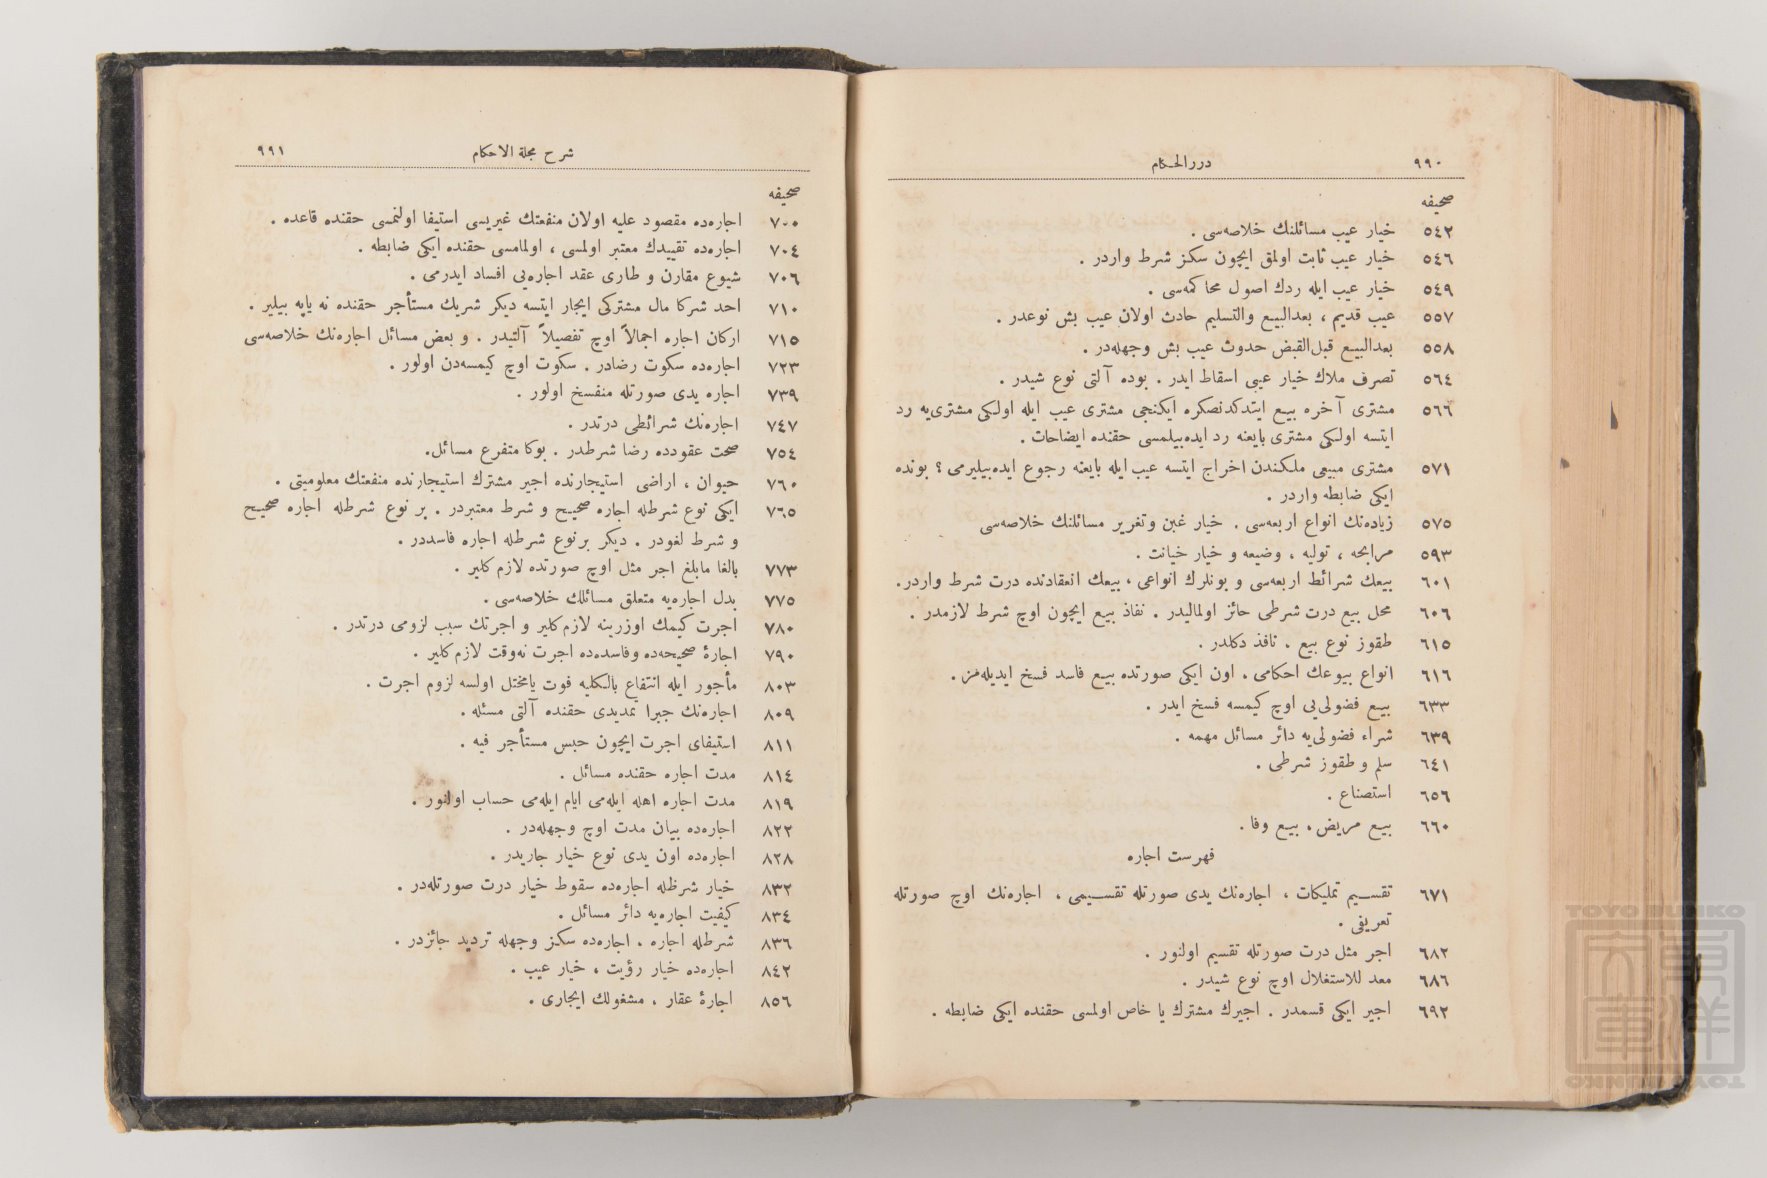 ٩٩٠ دررالحكام
صحيفه
٥٤٢ خيار عيب مسائلنك خلاصه‌سى .
٥٤٦ خيار عيب ثابت اولمق ايچون سكز شرط واردر .
٥٤٩ خيار عيب ايله ردك اصول محاكمه‌سى .
٥٥٧ عيب قديم ، بعدالبيع والتسليم حادث اولان عيب بش نوعدر .
٥٥٨ بعدالبيع قبل‌القبض حدوث عيب بش وجهله‌در .
٥٦٤ تصرف ملاك خيار عيبى اسقاط ايدر . بوده آلتى نوع شيدر .
٥٦٦ مشترى آخره بيع ايتدكدنصكره ايكنجى مشترى عيب ايله اولكى مشترى‌يه رد
ايتسه اولكى مشترى بايعنه رد ايده‌بيلمسى حقنده ايضاحات .
٥٧١ مشترى مبيعى ملكندن اخراج ايتسه عيب ايله بايعنه رجوع ايده‌بيليرمى ؟ بونده
ايكى ضابطه واردر .
٥٧٥ زياده‌نك انواع اربعه‌سى . خيار غبن وتغرير مسائلنك خلاصه‌سى
٥٩٣ مرابحه ، توليه ، وضيعه و خيار خيانت .
٦٠١ بيعك شرائط اربعه‌سى و بونلرك انواعى ، بيعك انعقادنده درت شرط واردر.
٦٠٦ محل بيع درت شرطى حائز اولماليدر . نفاذ بيع ايچون اوچ شرط لازمدر .
٦١٥ طقوز نوع بيع . نافذ دكلدر .
٦١٦ انواع بيوعك احكامى . اون ايكى صورتده بيع فاسد فسخ ايديله‌مز .
٦٣٣ بيع فضولى‌يى اوچ كيمسه فسخ ايدر .
٦٣٩ شراء فضولى‌يه دائر مسائل مهمه .
٦٤١ سلم و طقوز شرطى .
٦٥٦ استصناع .
٦٦٠ بيع مريض . بيع وفا .
فهرست اجاره
٦٧١ تقسيم تمليكات ، اجاره‌نك يدى صورتله تقسيمى ، اجاره‌نك اوچ صورتله
تعريفى .
٦٨٢ اجر مثل درت صورتله تقسيم اولنور .
٦٨٦ معد للاستغلال اوچ نوع شيدر .
٦٩٢ اجير ايكى قسمدر . اجيرك مشترك يا خاص اولمسى حقنده ايكى ضابطه .
شرح مجلة الاحكام ٩٩١
صحيفه
٧٠٠ اجاره‌ده مقصود عليه اولان منفعتك غيريسى استيفا اولنمسى حقنده قاعده .
٧٠٤ اجاره‌ده تقييدك معتبر اولمسى ، اولمامسى حقنده ايكى ضابطه .
٧٠٦ شيوع مقارن و طارى عقد اجاره‌يى افساد ايدرمى .
٧١٠ احد شركا مال مشتركى ايجار ايتسه ديكر شريك مستأجر حقنده نه ياپه بيلير .
٧١٥ اركان اجاره اجمالاً اوچ تفصيلاً آلتيدر . و بعض مسائل اجاره‌نك خلاصه‌سى
٧٢٣ اجاره‌ده سكوت رضادر . سكوت اوچ كيمسه‌دن اولور .
٧٣٩ اجاره يدى صورتله منفسخ اولور .
٧٤٧ اجاره‌نك شرائطى درتدر .
٧٥٤ صحت عقودده رضا شرطدر . بوكا متفرع مسائل .
٧٦٠ حيوان ، اراضى استيجارنده اجير مشترك استيجارنده منفعتك معلوميتى .
٧٦٥ ايكى نوع شرطله اجاره صحيح و شرط معتبردر . بر نوع شرطله اجاره صحيح
و شرط لغودر . ديكر بر نوع شرطله اجاره فاسددر .
٧٧٣ بالغا مابلغ اجر مثل اوچ صورتده لازم كلير .
٧٧٥ بدل اجاره‌يه متعلق مسائلك خلاصه‌سى .
٧٨٠ اجرت كيمك اوزرينه لازم كلير و اجرتك سبب لزومى درتدر .
٧٩٠ اجارۀ صحيحه‌ده وفاسده‌ده اجرت نه‌وقت لازم كلير .
٨٠٣ مأجور ايله انتفاع بالكليه فوت يامختل اولسه لزوم اجرت .
٨٠٩ اجاره‌نك جبرا تمديدى حقنده آلتى مسئله .
٨١١ استيفاى اجرت ايچون حبس مستأجر فيه .
٨١٤ مدت اجاره حقنده مسائل .
٨١٩ مدت اجاره اهله ايله‌مى ايام ايله‌مى حساب اولنور .
٨٢٢ اجاره‌ده بيان مدت اوچ وجهله‌در .
٨٢٨ اجاره‌ده اون يدى نوع خيار جاريدر .
٨٣٢ خيار شرطله اجاره‌ده سقوط خيار درت صورتله‌در .
٨٣٤ كيفيت اجاره‌يه دائر مسائل .
٨٣٦ شرطله اجاره . اجاره‌ده سكز وجهله ترديد جائزدر .
٨٤٢ اجاره‌ده خيار رؤيت ، خيار عيب .
٨٥٦ اجارۀ عقار ، مشغولك ايجارى .
TOYO BUNKO
東洋文庫
TOYO BUNKO